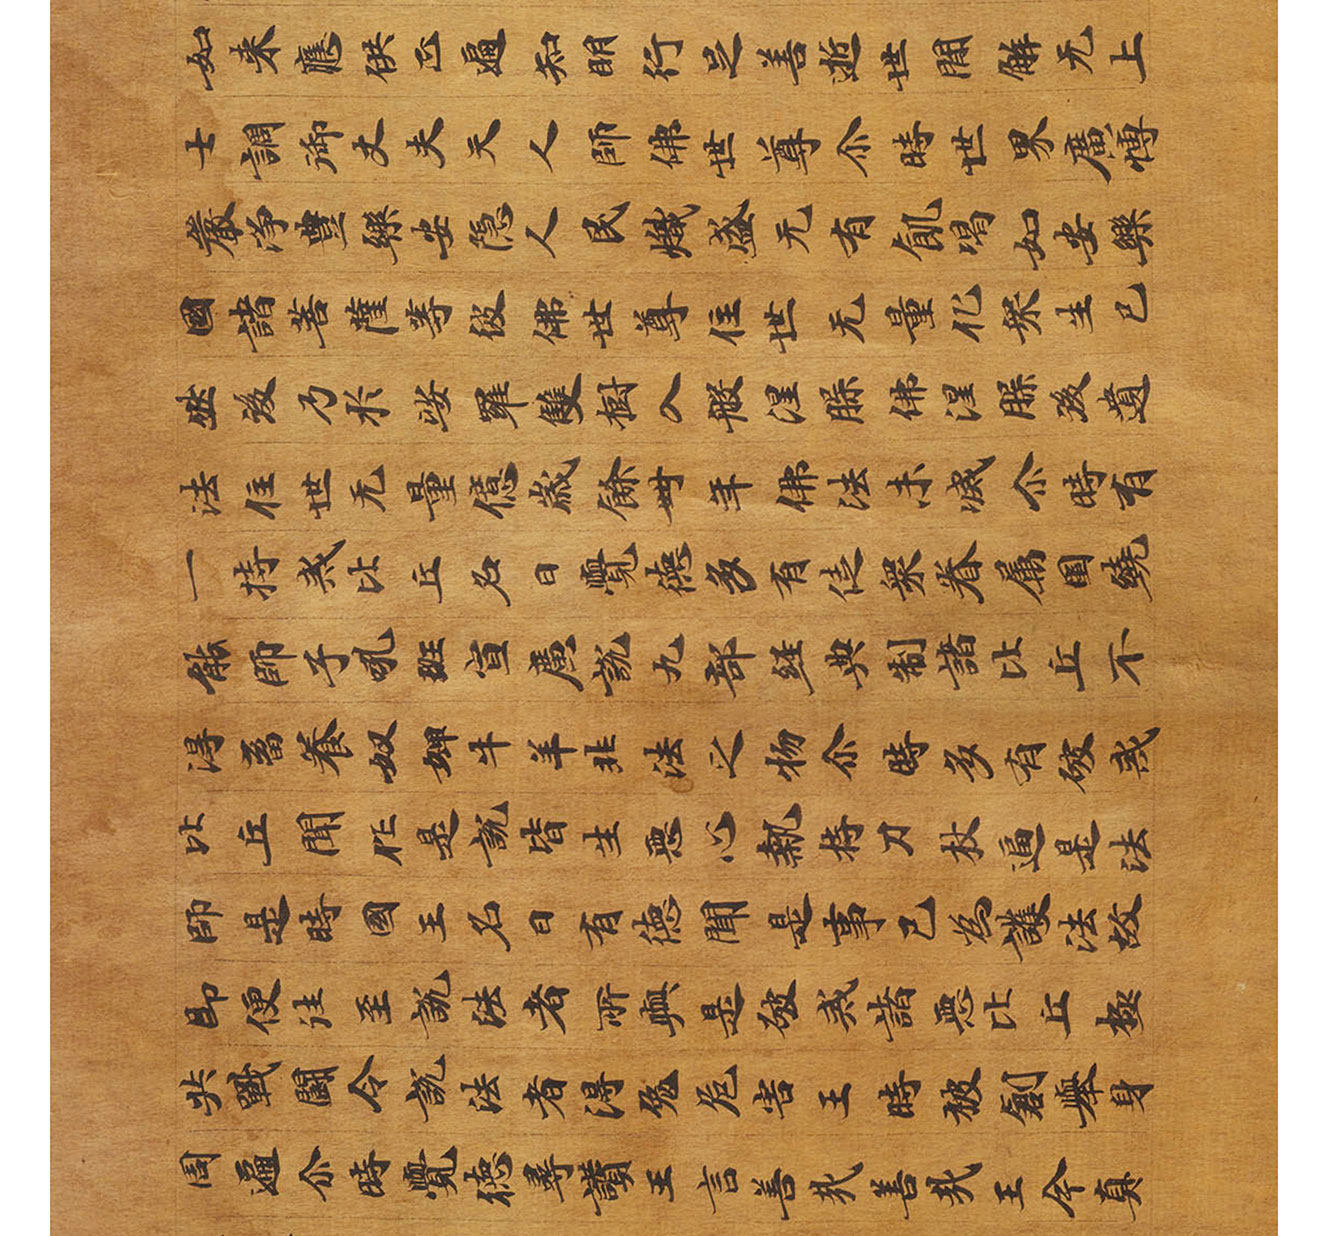 如來應供正遍知明行足善逝世間解无上
士調御丈夫天人師佛世尊尒時世界廣博
嚴淨豐樂安隱人民熾盛无有飢渴如安樂
國諸菩薩等彼佛世尊住世无量化眾生已
然後乃於娑羅雙樹入般涅槃佛涅槃後遺
法住世无量億歲餘卌年佛法未滅尒時有
一持戒比丘名曰覺德多有徒眾眷属圍繞
能師子吼班宣廣說九部經典制諸比丘不
得畜養奴婢牛羊非法之物尒時多有破戒
比丘聞作是說皆生惡心執持刀杖逼是法
師是時國王名曰有德聞是事已為護法故
即便往至說法者所與是破戒諸惡比丘極
共戰鬪令說法者得免危害王時被創舉身
周遍尒時覺德尋讚王言善哉善哉王今真